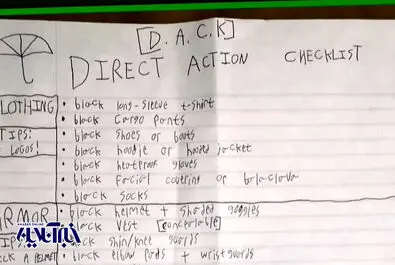 [D.A.C.K]
DIRECT ACTION CHECKLIST
LOTHING
• black long-sleeve t-shirt
• black cargo pants
TIPS:
• black shoes or boots
LOGOS!
• black hoodie or hooded jacket
• black heatproof gloves
• black facial covering or balaclava
• black socks
RMOR
black helmet + shaded goggles
black vest [concealable]
IPS
ack shin/knee guards
CK A HELMET
• black elbow pads + wristguards